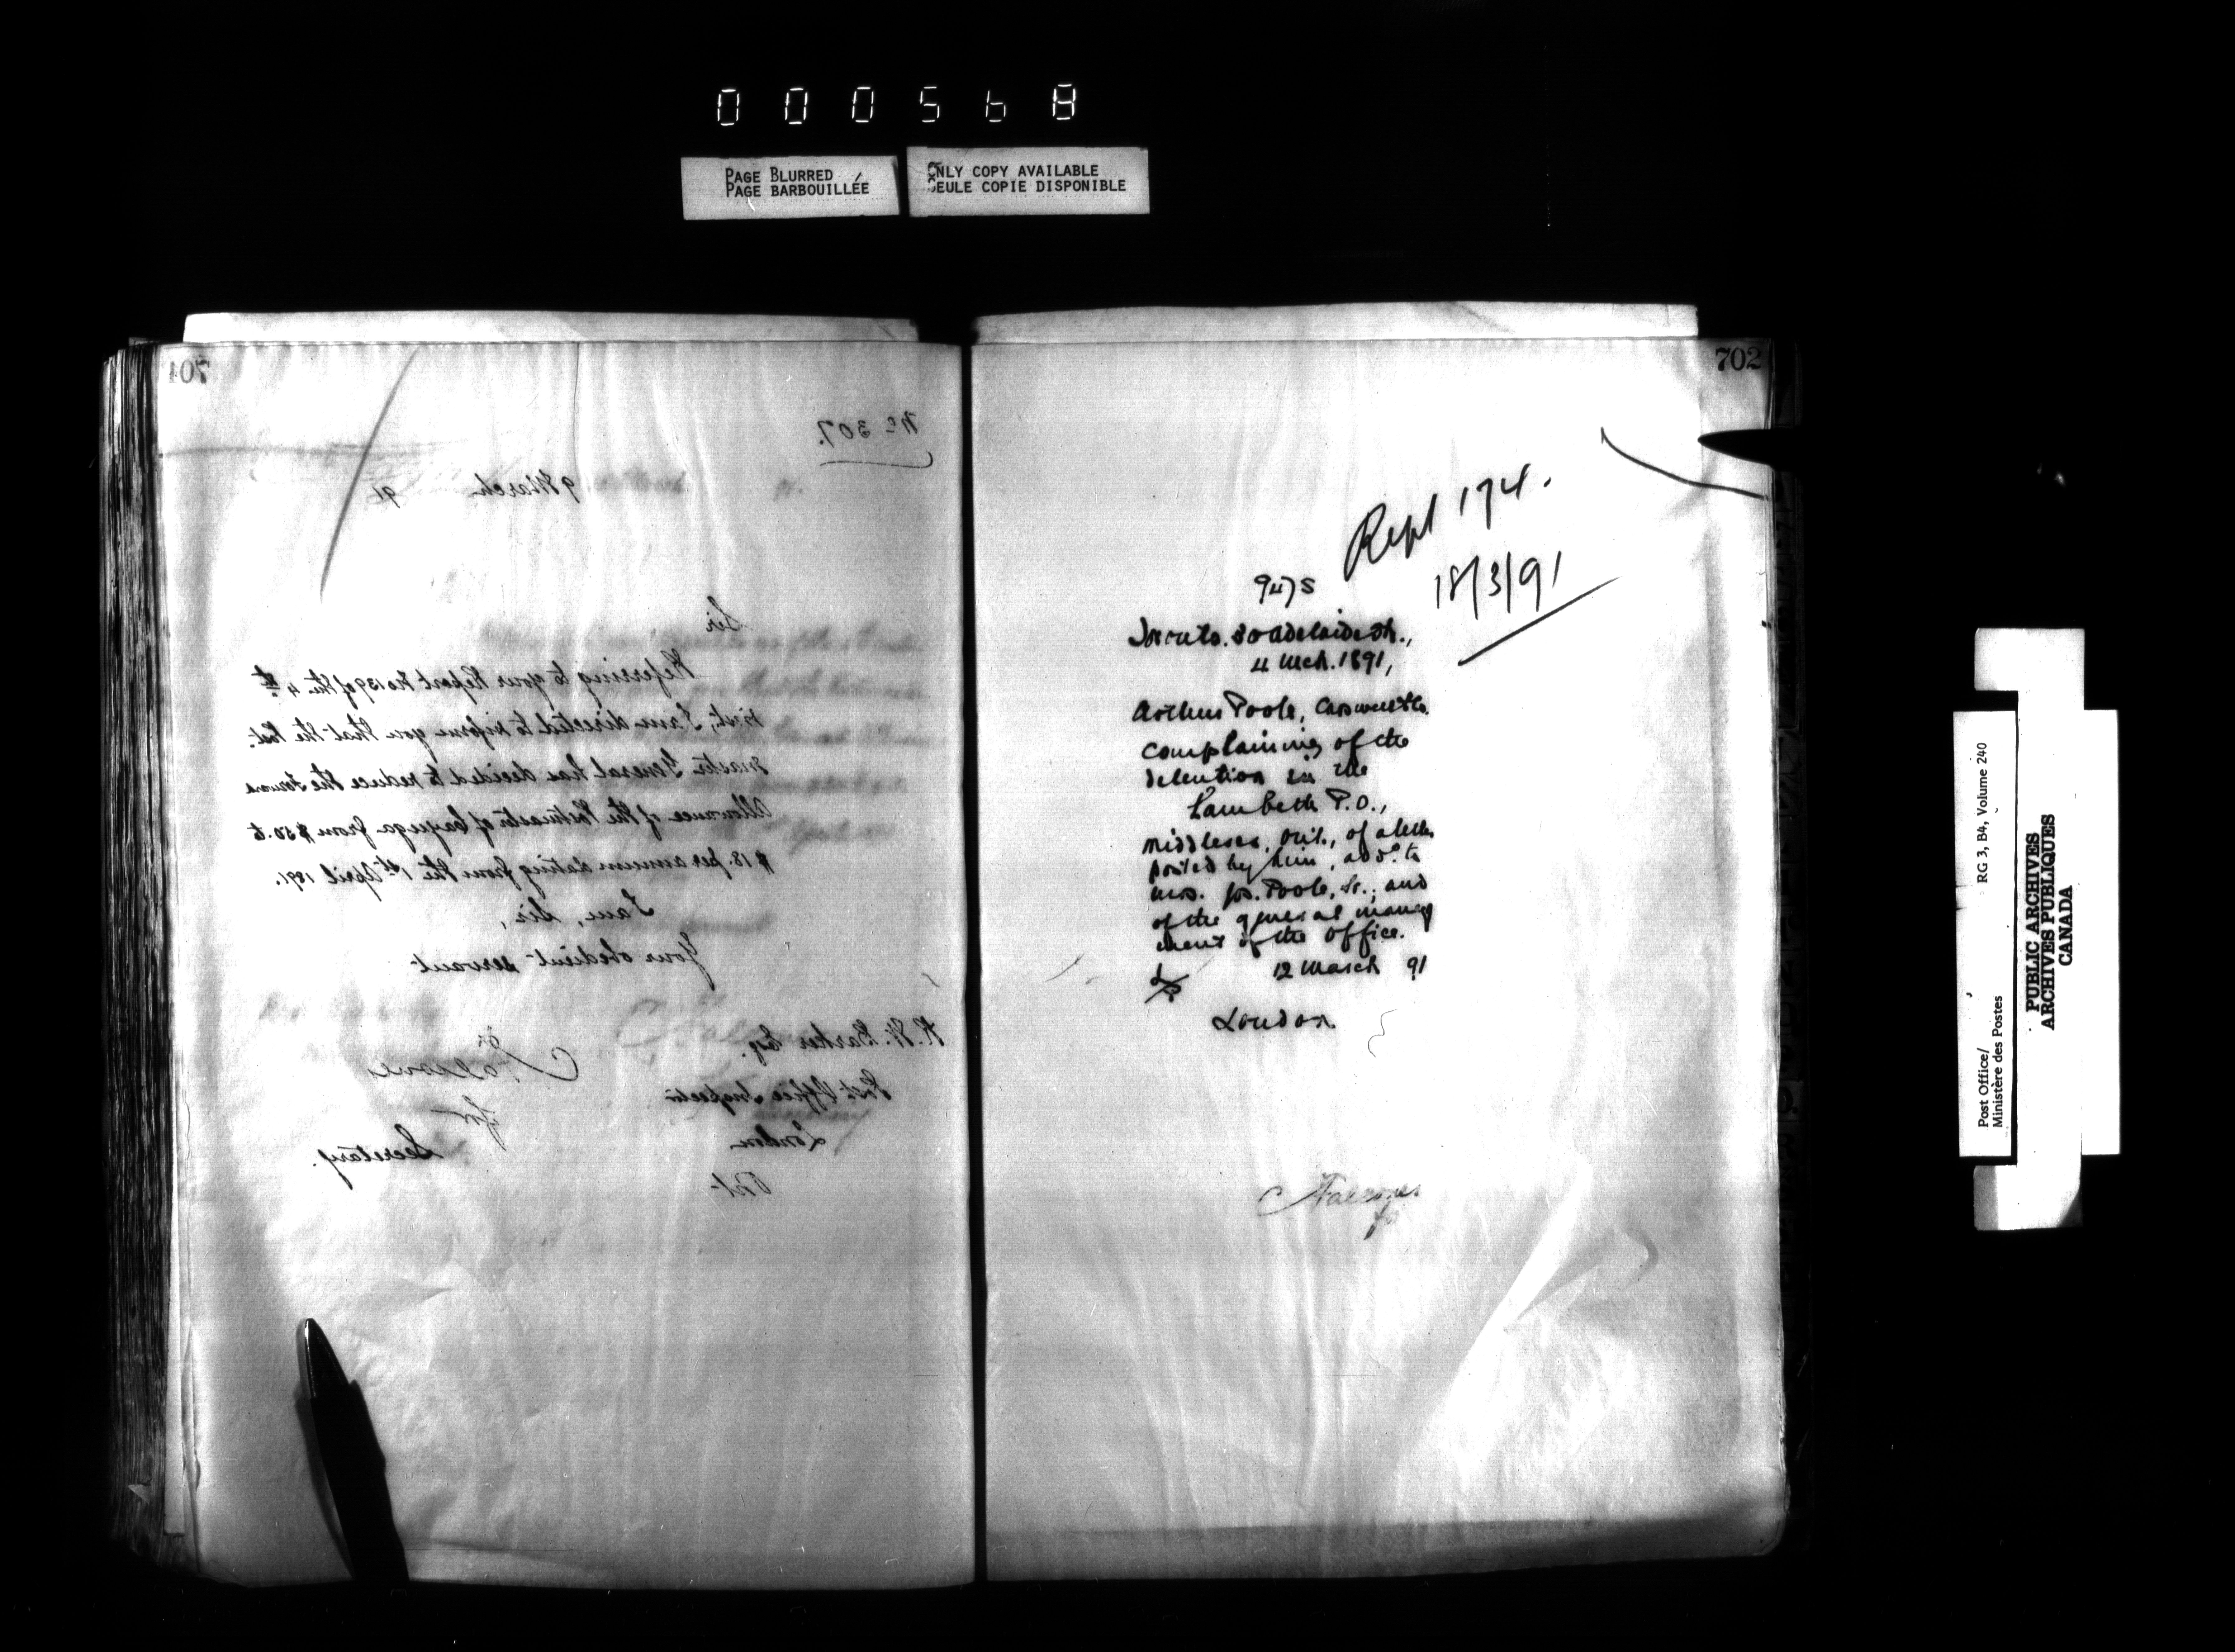 000568
PAGE BLURRED
PAGE BARBOUILLÉE
ONLY COPY AVAILABLE
SEULE COPIE DISPONIBLE
701
No 307.
9 March 91
Sir
Referring to your Report No 139 of the 4th
inst, I am directed to inform you that the Post
master General has decided to reduce the
Allowance of the Postmaster of Cayuga from $50. to
$18. per annum dating from the 1st April 1891.
I am, Sir,
Your obedient servant
R. W. Barker Esq.
Post Office Inspector
London
Ont
for
Secretary.
702
Rept 174.
18/3/91
947 S
Toronto. 80 Adelaide St.,
4 Mch. 1891,
Arthur Poole,
complaining of the
detention in the
Lambeth P.O.,
Middlesex, Ont., of a letter
posted by him, add. to
Mrs. Jos. Poole, Sr., and
of the general manag
ment of the office.
12 March 91
London
Post Office/
Ministère des Postes
RG 3, B4, Volume 240
PUBLIC ARCHIVES
ARCHIVES PUBLIQUES
CANADA